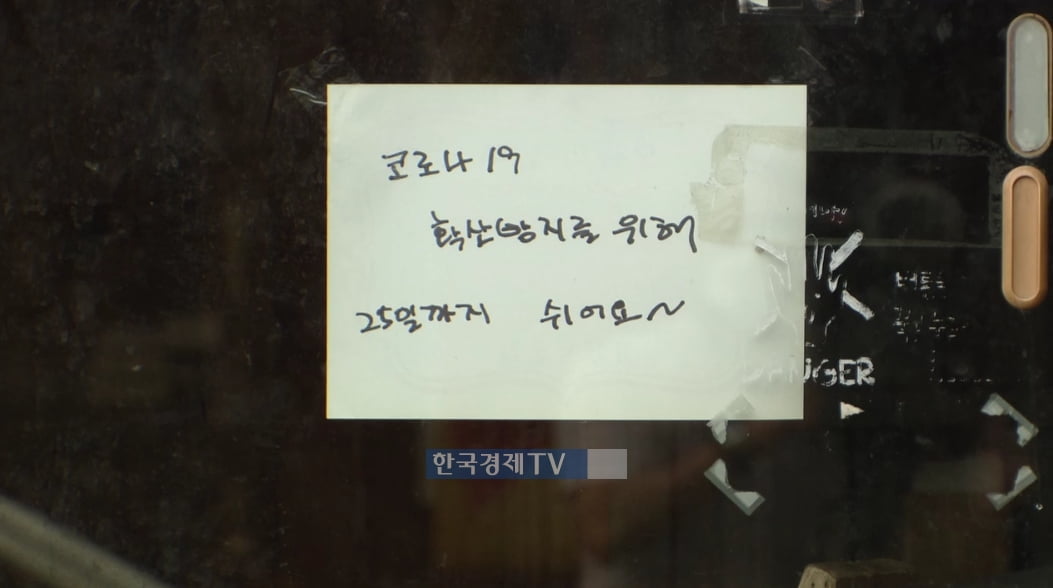 코로나 19
확산방지를 위해
25일까지 쉬어요~
DANGER
한국경제TV